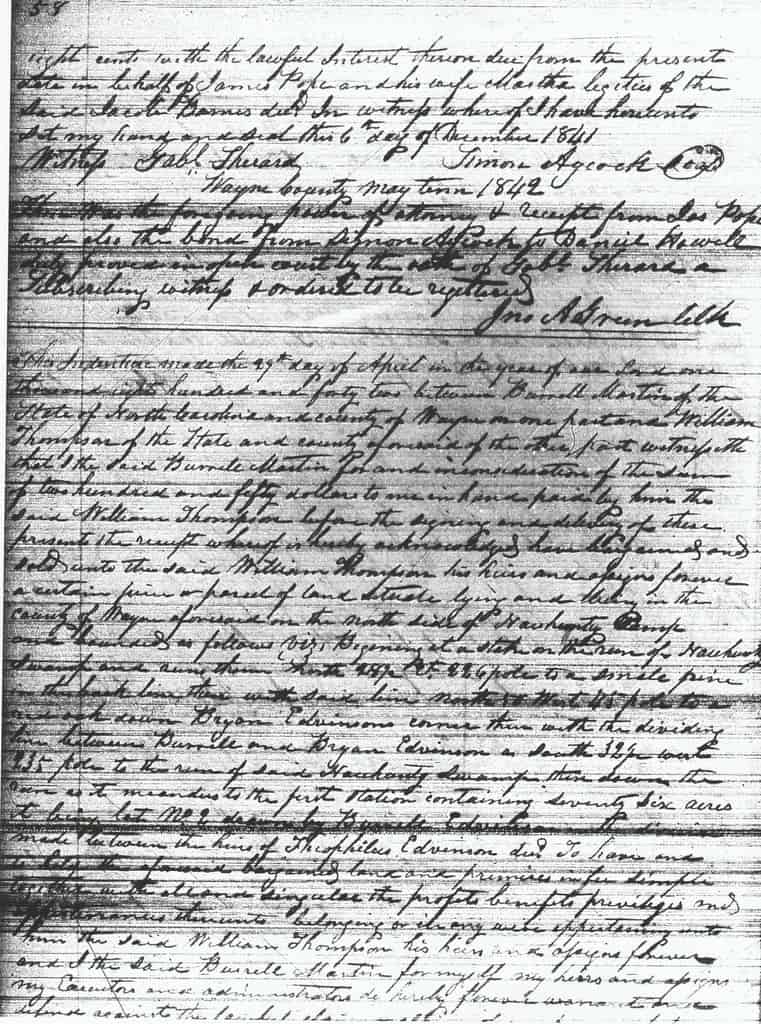 58
eight cents with the lawful Interest thereon due from the present
date in behalf of James Pope and his wife Martha legitees of the
said Jacob Barnes decd In witness whereof I have hereunto
set my hand and seal this 6th day of December 1841
Witness Gabl Sherard Simon Aycock Seal
Wayne County May term 1842
Then was the foregoing power of attorney & receipt from Jas Pope
and also the bond from Simon Aycock to Daniel Howell
duly proved in open court by the oath of Gabl Sherard a
Subscribing witness & ordered to be registered
Jno A Green Clk
This Indenture made the 29th day of April in the year of our Lord one
thousand eight hundred and forty two between Burrell Martin of the
State of North Carolina and county of Wayne on one part and William
Thompson of the State and county aforesaid of the other part witnesseth
that I the said Burrell Martin for and in consideration of the sum
of two hundred and fifty dollars to me in hand paid by him the
said William Thompson before the signing and delivery of these
presents the receipt whereof is hereby acknowledged have bargained and
sold unto the said William Thompson his heirs and assigns forever
a certain piece or parcel of land situate lying and being in the
county of Wayne aforesaid on the north side of Nauhunty Swamp
and bounded as follows viz: Begening at a stake on the run of Nauhunty
Swamp and runs thence North 226 pole to a small pine
in the back line thence with said line north West 45 pole to a
red oak down Bryan Edvinsons corner then with the dividing
line between Burrell and Bryan Edvinson as south 32½ west
235 pole to the run of said Nauhunty Swamp then down the
run as it meanders to the first station containing seventy six acres
it being lot No 2 drawn by Burrell Edvinson in the division
made between the heirs of Theophilus Edvinson decd To have and
to hold the aforesaid bargained land and premises in fee simple
together with all and singular the profits benefits priviledges and
appurtenances thereunto belonging or in any wise appertaining unto
him the said William Thompson his heirs and assigns forever
and I the said Burrell Martin for myself my heirs and assigns
my Executors and administrators do hereby forever warrant and
defend against the lawful claim